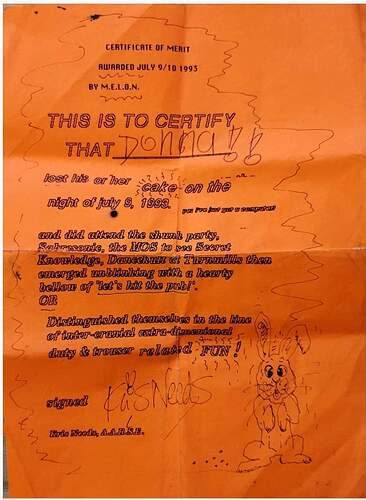 CERTIFICATE OF MERIT
AWARDED JULY 9/10 1993
BY M.E.L.O.N.
THIS IS TO CERTIFY
THAT Donna!!
lost his or her cake on the
night of july 9, 1993. yes I've just got a computer!
and did attend the skunk party,
Sabresonic, the MOS to see Secret
Knowledge, Dancekum at Turnmills then
emerged unblinking with a hearty
bellow of "let's hit the pub!'.
OR
Distinguished themselves in the line
of inter-cranial extra-dimensional
duty & trouser related FUN!
signed Kris Needs
Kris Needs, A.A.R.S.E.